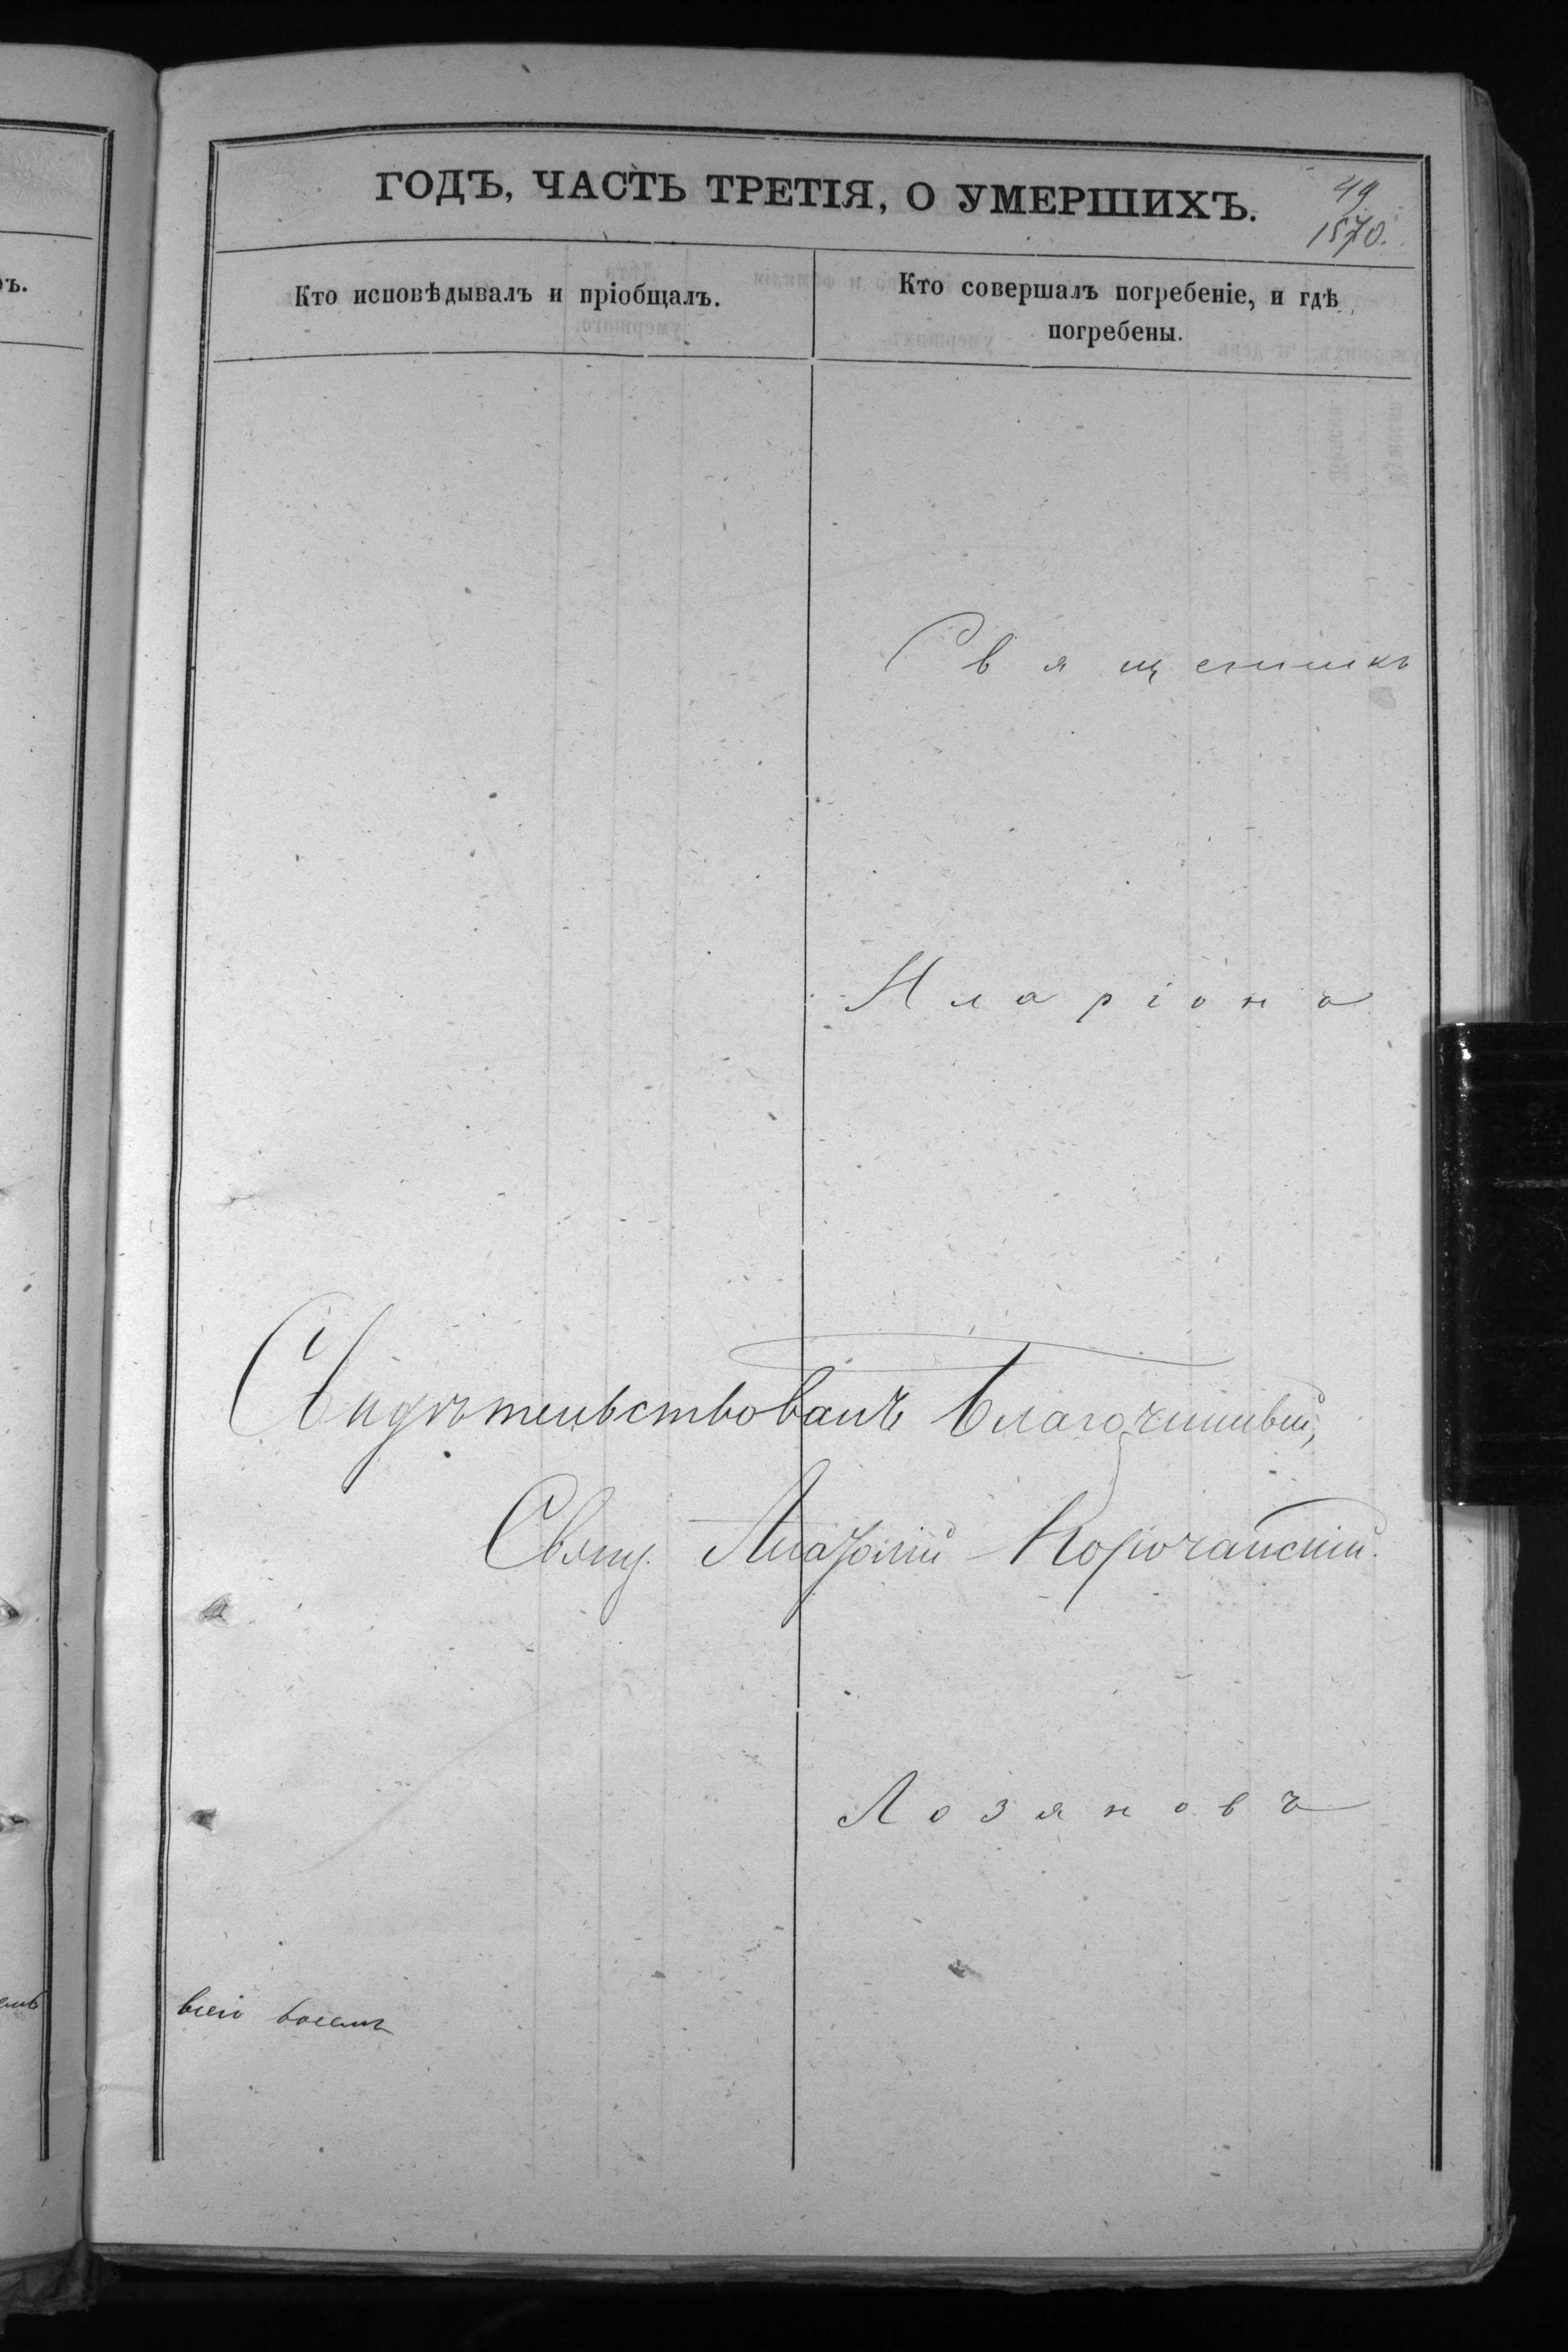 ГОДЪ, ЧАСТЬ ТРЕТІЯ, О УМЕРШИХЪ.
49
1570.
Кто исповѣдывалъ и пріобщалъ.
Кто совершалъ погребеніе, и гдѣ
погребены.
Священикъ
Иларіонъ
Свидѣтельствовалъ Благочинный,
Свящ. Корочанскій.
Лозяновъ
всего восемь